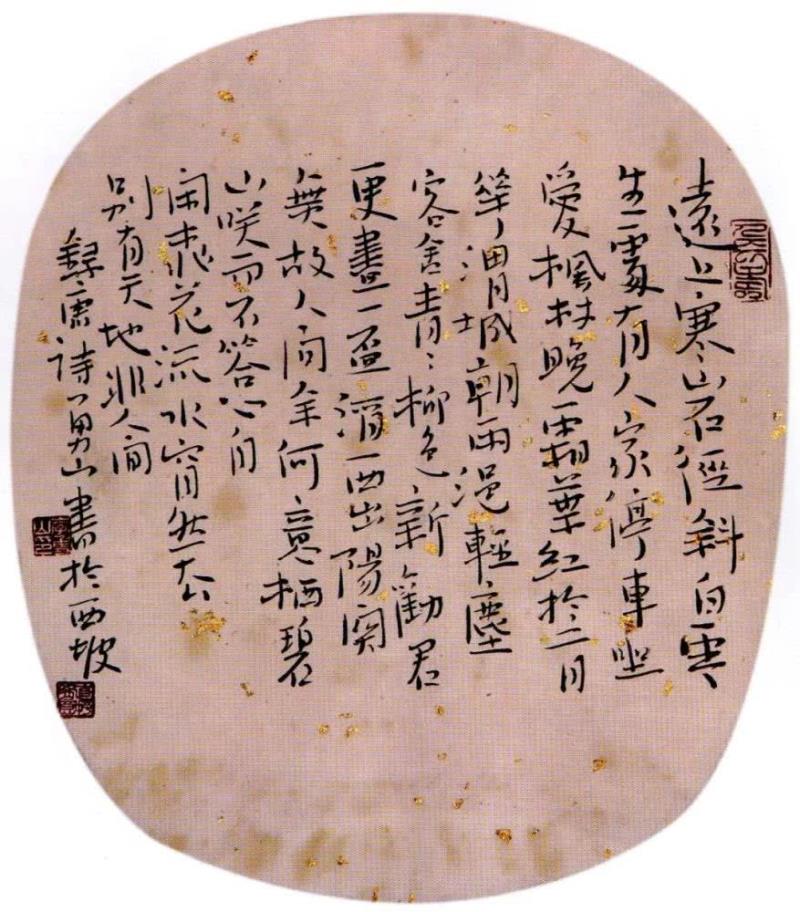 遠上寒山石徑斜白雲
生處有人家停車坐
愛楓林晚霜葉紅於二月
華渭城朝雨浥輕塵
客舍青〻柳色新勸君
更盡一盃酒西出陽關
無故人问余何意栖碧
山咲而不答心自
闲桃花流水窅然去
别有天地非人间
録唐诗勇山書於西坡